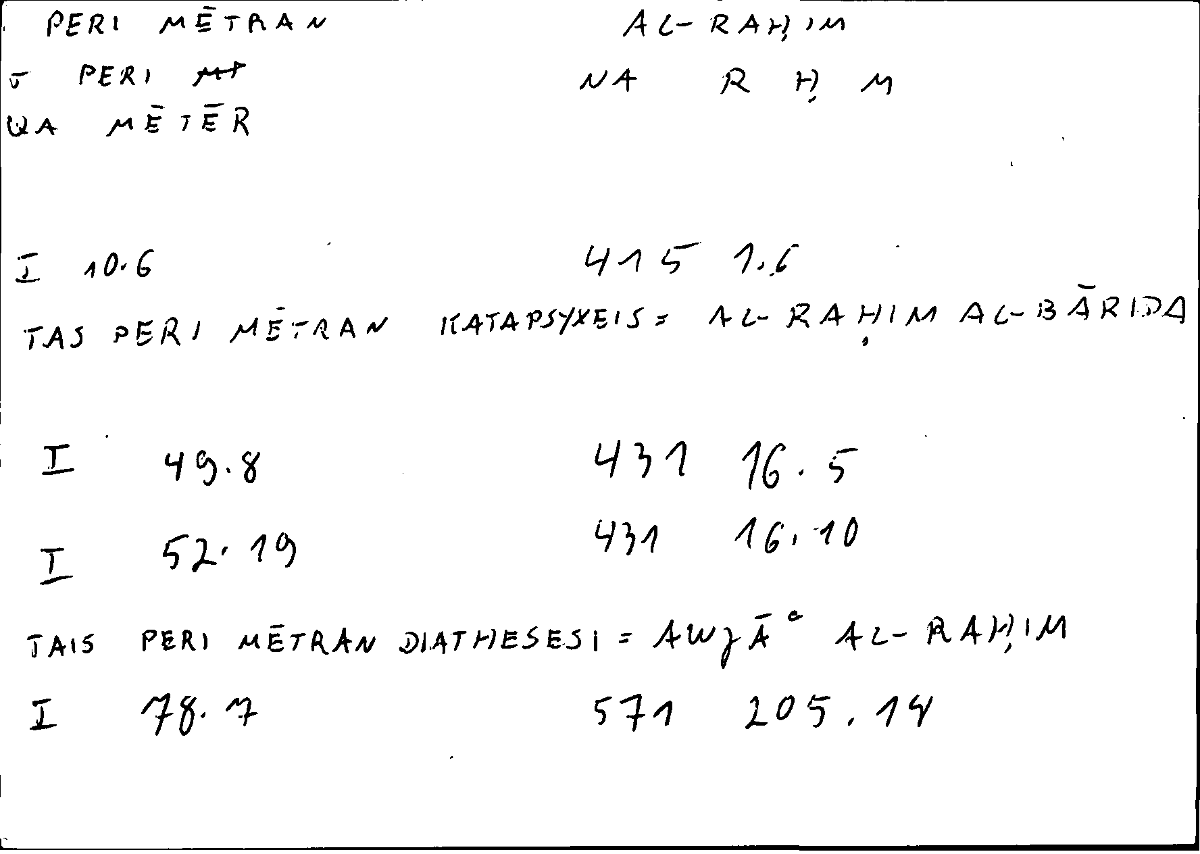 PERI MĒTRAN AL-RAḤIM
J PERI NA R Ḥ M
WA MĒTĒR
I 10.6 415 1.6
TAS PERI MĒTRAN KATAPSYXEIS = AL-RAḤIM AL-BĀRIDA
I 49.8 431 16.5
I 52.19 431 16.10
TAIS PERI MĒTRAN DIATHESESI = AWJĀʿ AL-RAḤIM
I 78.7 571 205.14